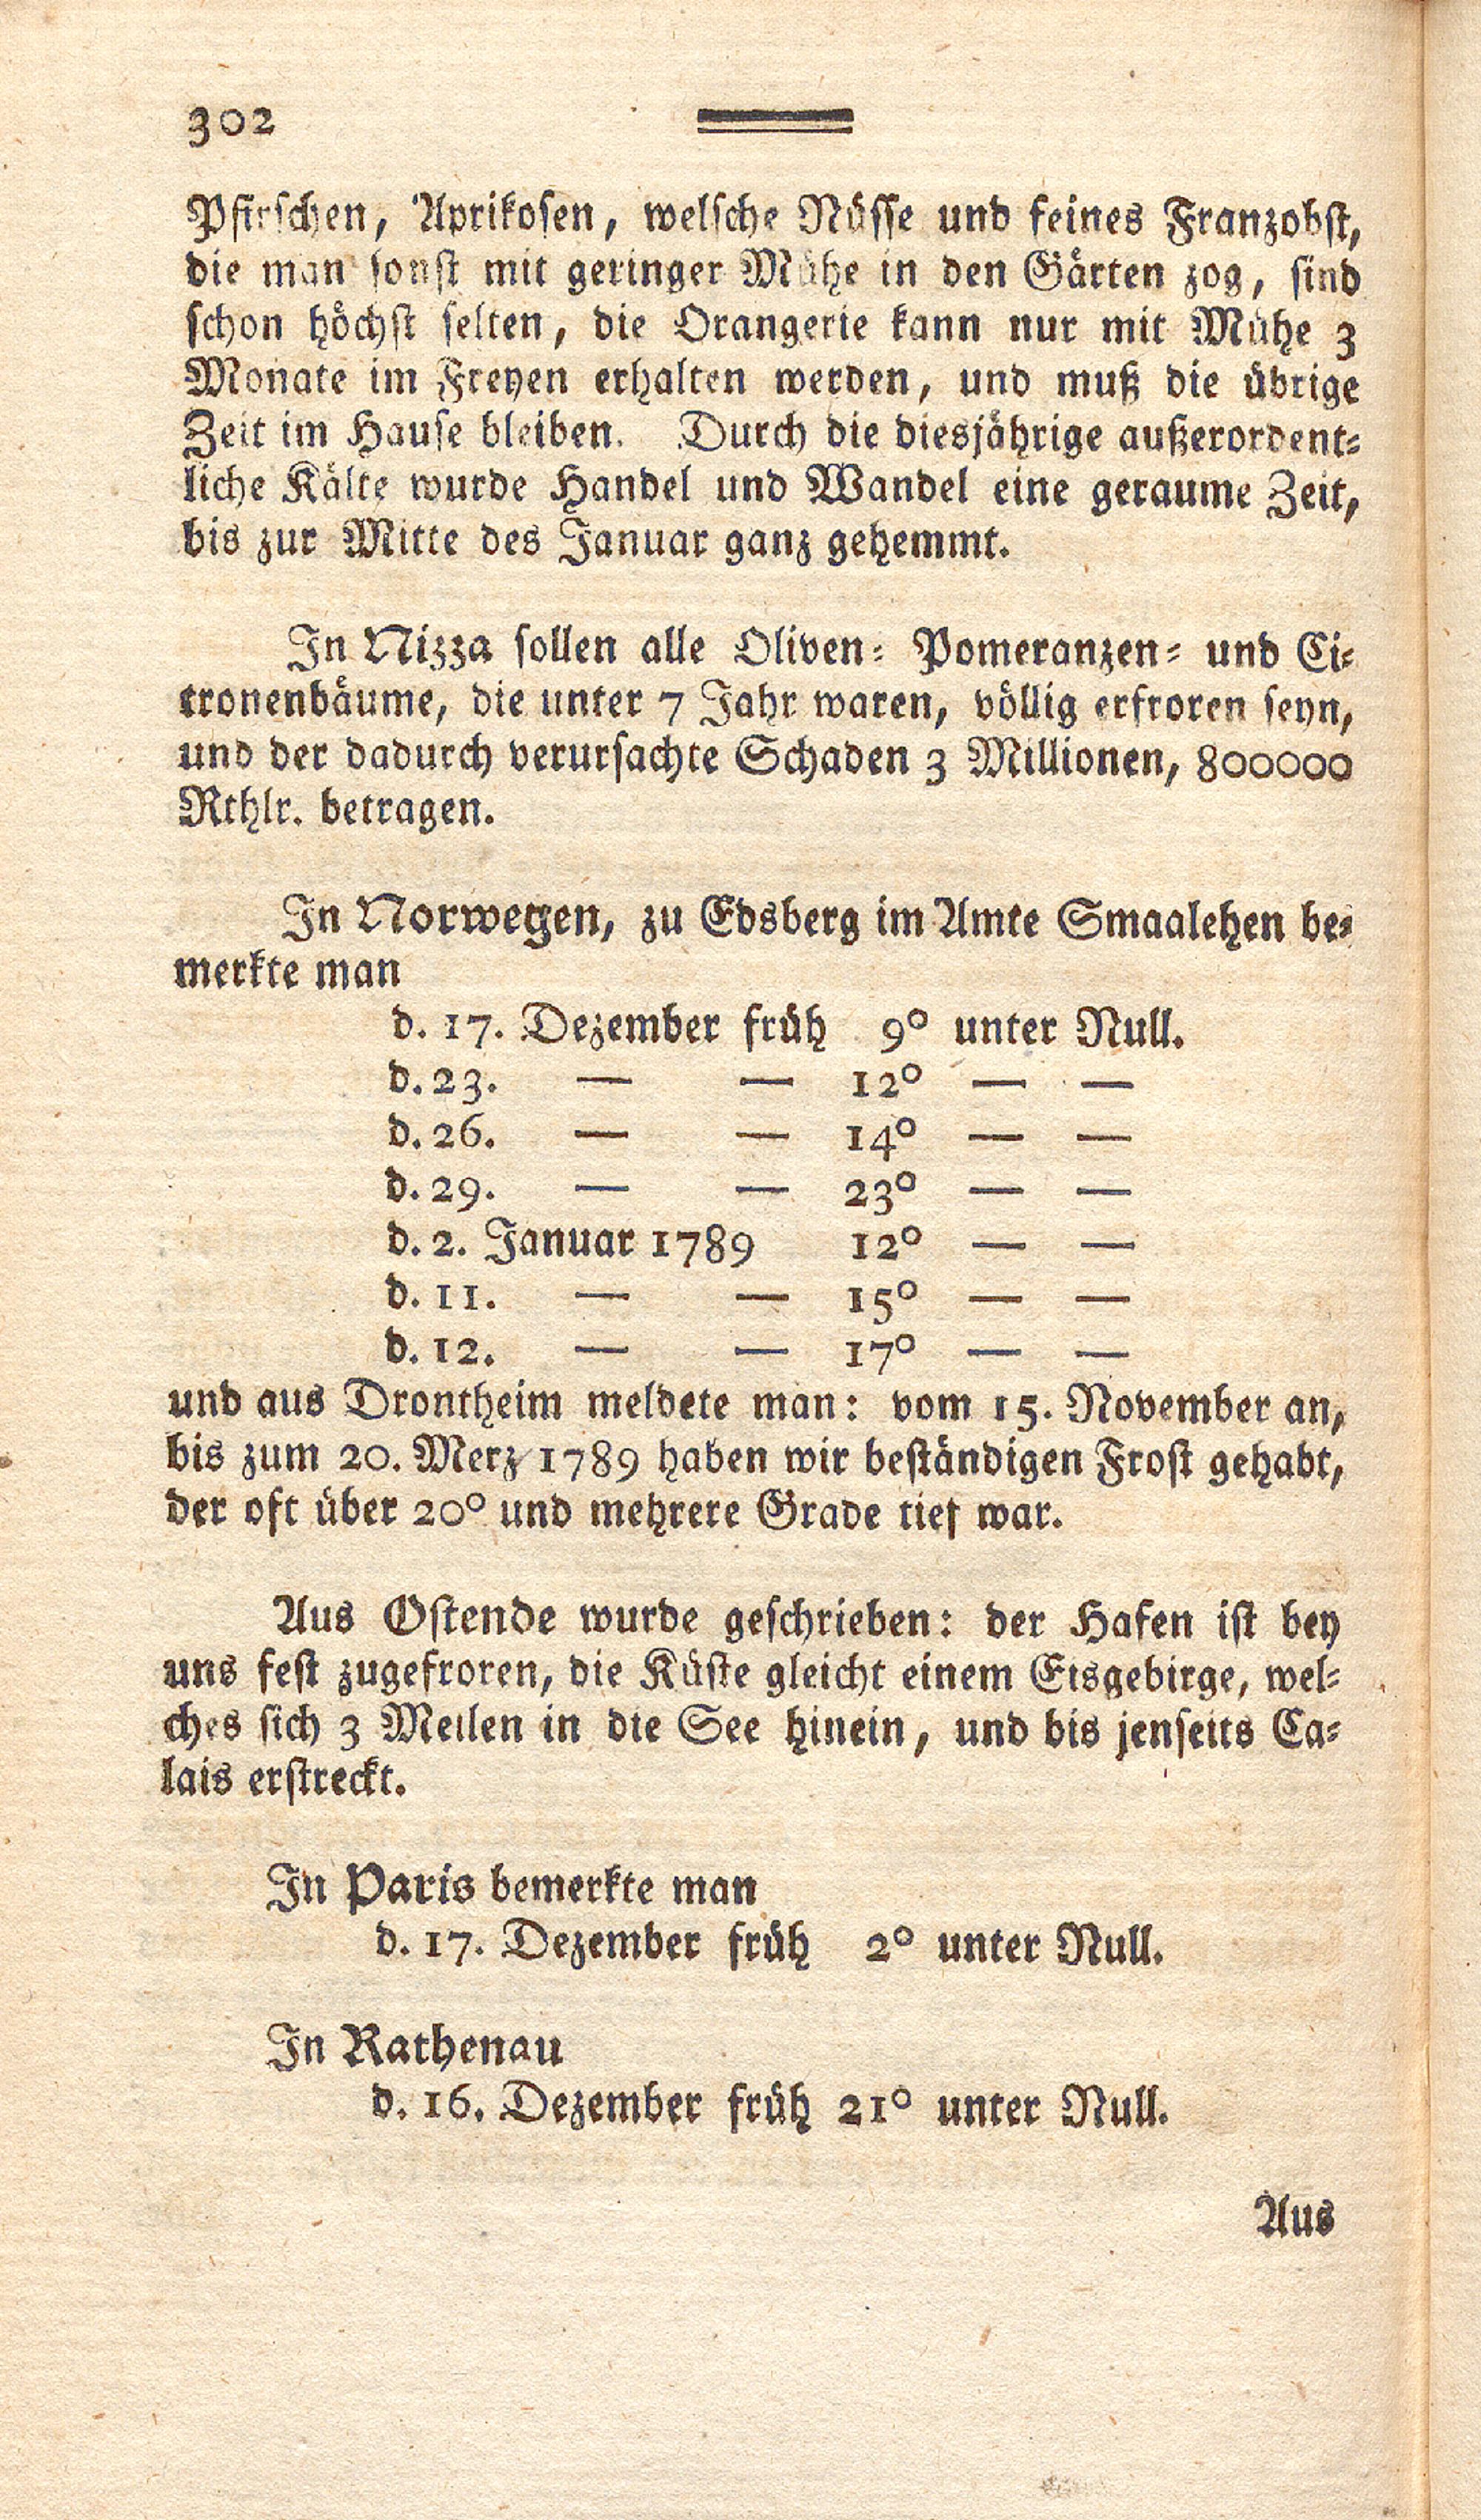 302
Pfirschen, Aprikosen, welsche Nüsse und feines Franzobst,
die man sonst mit geringer Mühe in den Gärten zog, sind
schon höchst selten, die Orangerie kann nur mit Mühe 3
Monate im Freyen erhalten werden, und muß die übrige
Zeit im Hause bleiben. Durch die diesjährige außerordent-
liche Kälte wurde Handel und Wandel eine geraume Zeit,
bis zur Mitte des Januar ganz gehemmt.
In Nizza sollen alle Oliven- Pomeranzen- und Ci-
tronenbäume, die unter 7 Jahr waren, völlig erfroren seyn,
und der dadurch verursachte Schaden 3 Millionen, 800000
Rthlr. betragen.
In Norwegen, zu Edsberg im Amte Smaalehen be-
merkte man
d. 17. Dezember früh 9° unter Null.
d. 23. — — 12° — —
d. 26. — — 14° — —
d. 29. — — 23° — —
d. 2. Januar 1789 12° — —
d. 11. — — 15° — —
d. 12. — — 17° — —
und aus Drontheim meldete man: vom 15. November an,
bis zum 20. Merz 1789 haben wir beständigen Frost gehabt,
der oft über 20° und mehrere Grade tief war.
Aus Ostende wurde geschrieben: der Hafen ist bey
uns fest zugefroren, die Küste gleicht einem Eisgebirge, wel-
ches sich 3 Meilen in die See hinein, und bis jenseits Ca-
lais erstreckt.
In Paris bemerkte man
d. 17. Dezember früh 2° unter Null.
In Rathenau
d. 16. Dezember früh 21° unter Null.
Aus